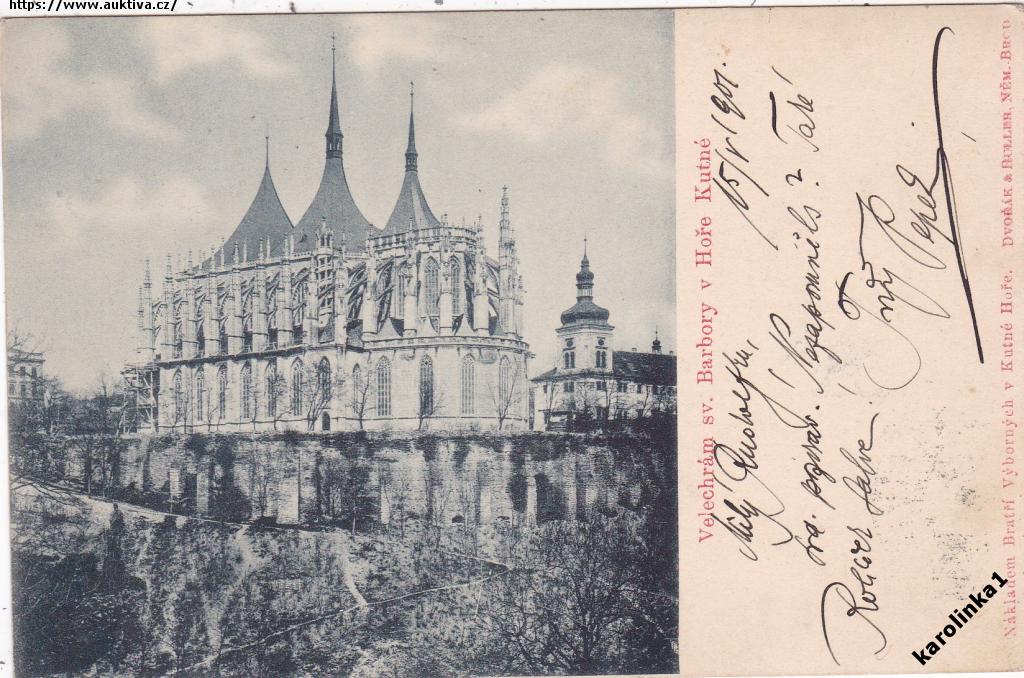 https://www.auktiva.cz/
Velechrám sv. Barbory v Hoře Kutné
15/V 1901.
Milý Rudolfku,
na pozdrav. Nezapomněls? Také
salve!
Tvůj Pepa
Nákladem Bratří Výborných v Kutné Hoře. Dvořák & Buller, Něm.-Brod.
karolinka1